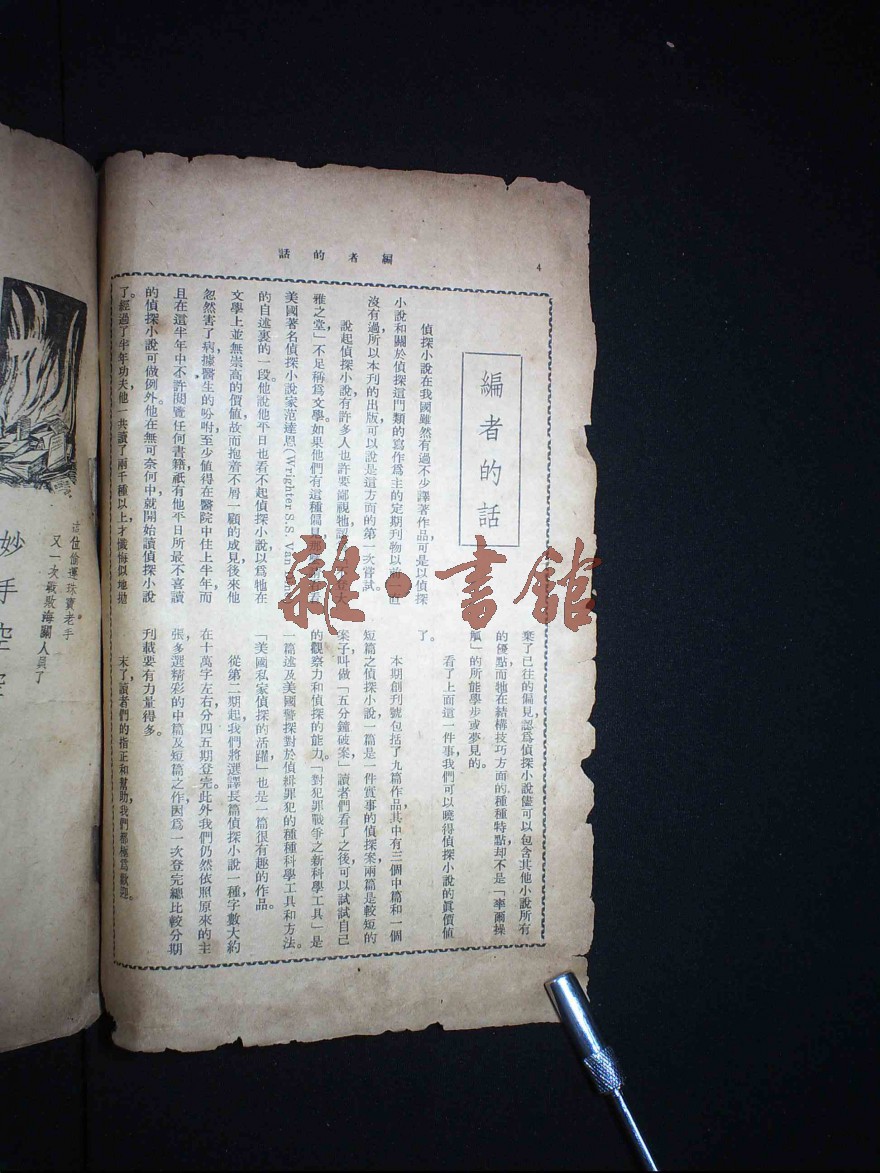 4
編者的話
編者的話
偵探小說在我國雖然有過不少譯著作品，可是以偵探
小說和關於偵探這門類的寫作爲主的定期刊物以前一直
沒有過，所以本刊的出版，可以說是這方面的第一次嘗試。
說起偵探小說，有許多人也許要鄙視牠，
雅之堂」不足稱爲文學。如果他們有這種偏見，
美國著名偵探小說家范達恩(Wrighter S.S. Van
的自述裏的一段。他說他平日也看不起偵探小說，以爲牠在
文學上並無崇高的價值，故而抱着不屑一顧的成見，後來他
忽然害了病，據醫生的吩咐，至少値得在醫院中住上半年，而
且在這半年中，不許閱覽任何書籍，祇有他平日所最不喜讀
的偵探小說，可做例外。他在無可奈何中，就開始讀偵探小說
了。經過了半年功夫，他一共讀了兩千種以上，才懺悔似地拋
棄了已往的偏見，認爲偵探小說儘可以包含其他小說所有
的優點，而牠在結構技巧方面的種種特點，却不是「率爾操
觚」的所能學步或夢見的。
看了上面這一件事，我們可以曉得偵探小說的眞價値
了。
本期創刊號包括了九篇作品，其中有三個中篇和一個
短篇之偵探小說，一篇是一件實事的偵探案，兩篇是較短的
案子，叫做「五分鐘破案」讀者們看了之後，可以試試自己
的觀察力和偵探的能力。「對犯罪戰爭之新科學工具」是
一篇述及美國警探對於偵緝罪犯的種種科學工具和方法。
「美國私家偵探的活躍」也是一篇很有趣的作品。
從第二期起，我們將選譯長篇偵探小說一種，字數大約
在十萬字左右，分四五期登完。此外我們仍然依照原來的主
張，多選精彩的中篇及短篇之作，因爲一次登完總比較分期
刊載要有力量得多。
末了，讀者們的指正和幫助，我們都極爲歡迎。
雜·書館
這位偸運珠寶老手
又一次戰敗海關人員了
妙手空空